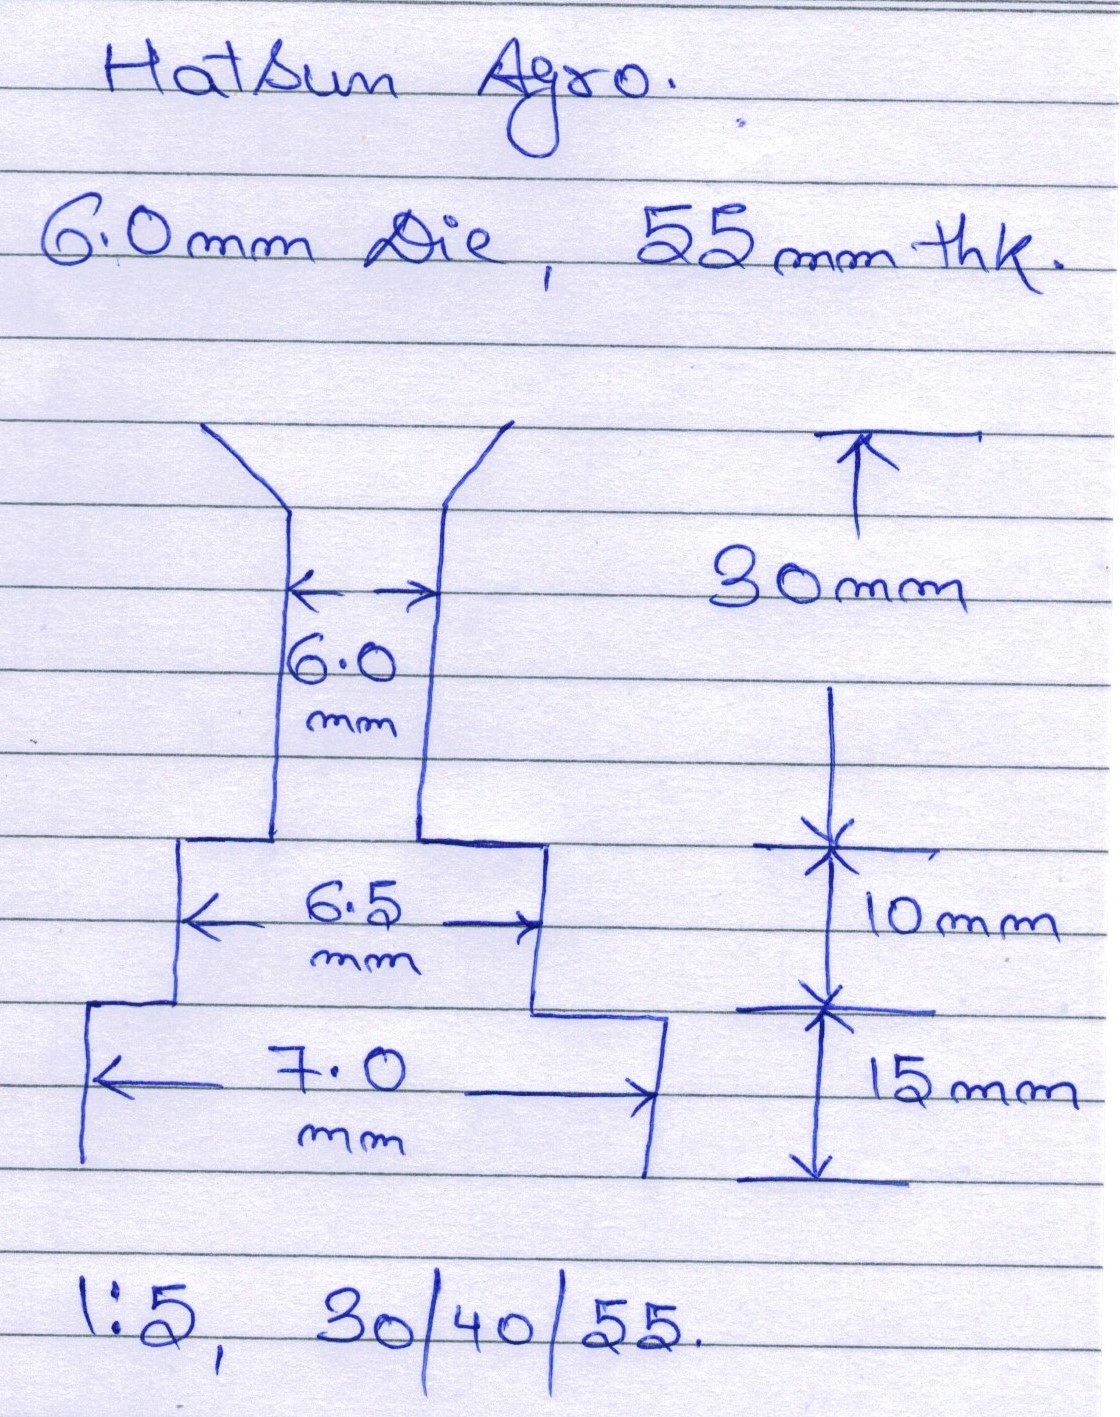 Hatsun Agro.
6.0mm Die, 55mm thk.
30mm
6.0
mm
6.5
mm
10mm
7.0
mm
15mm
1:5, 30/40/55.